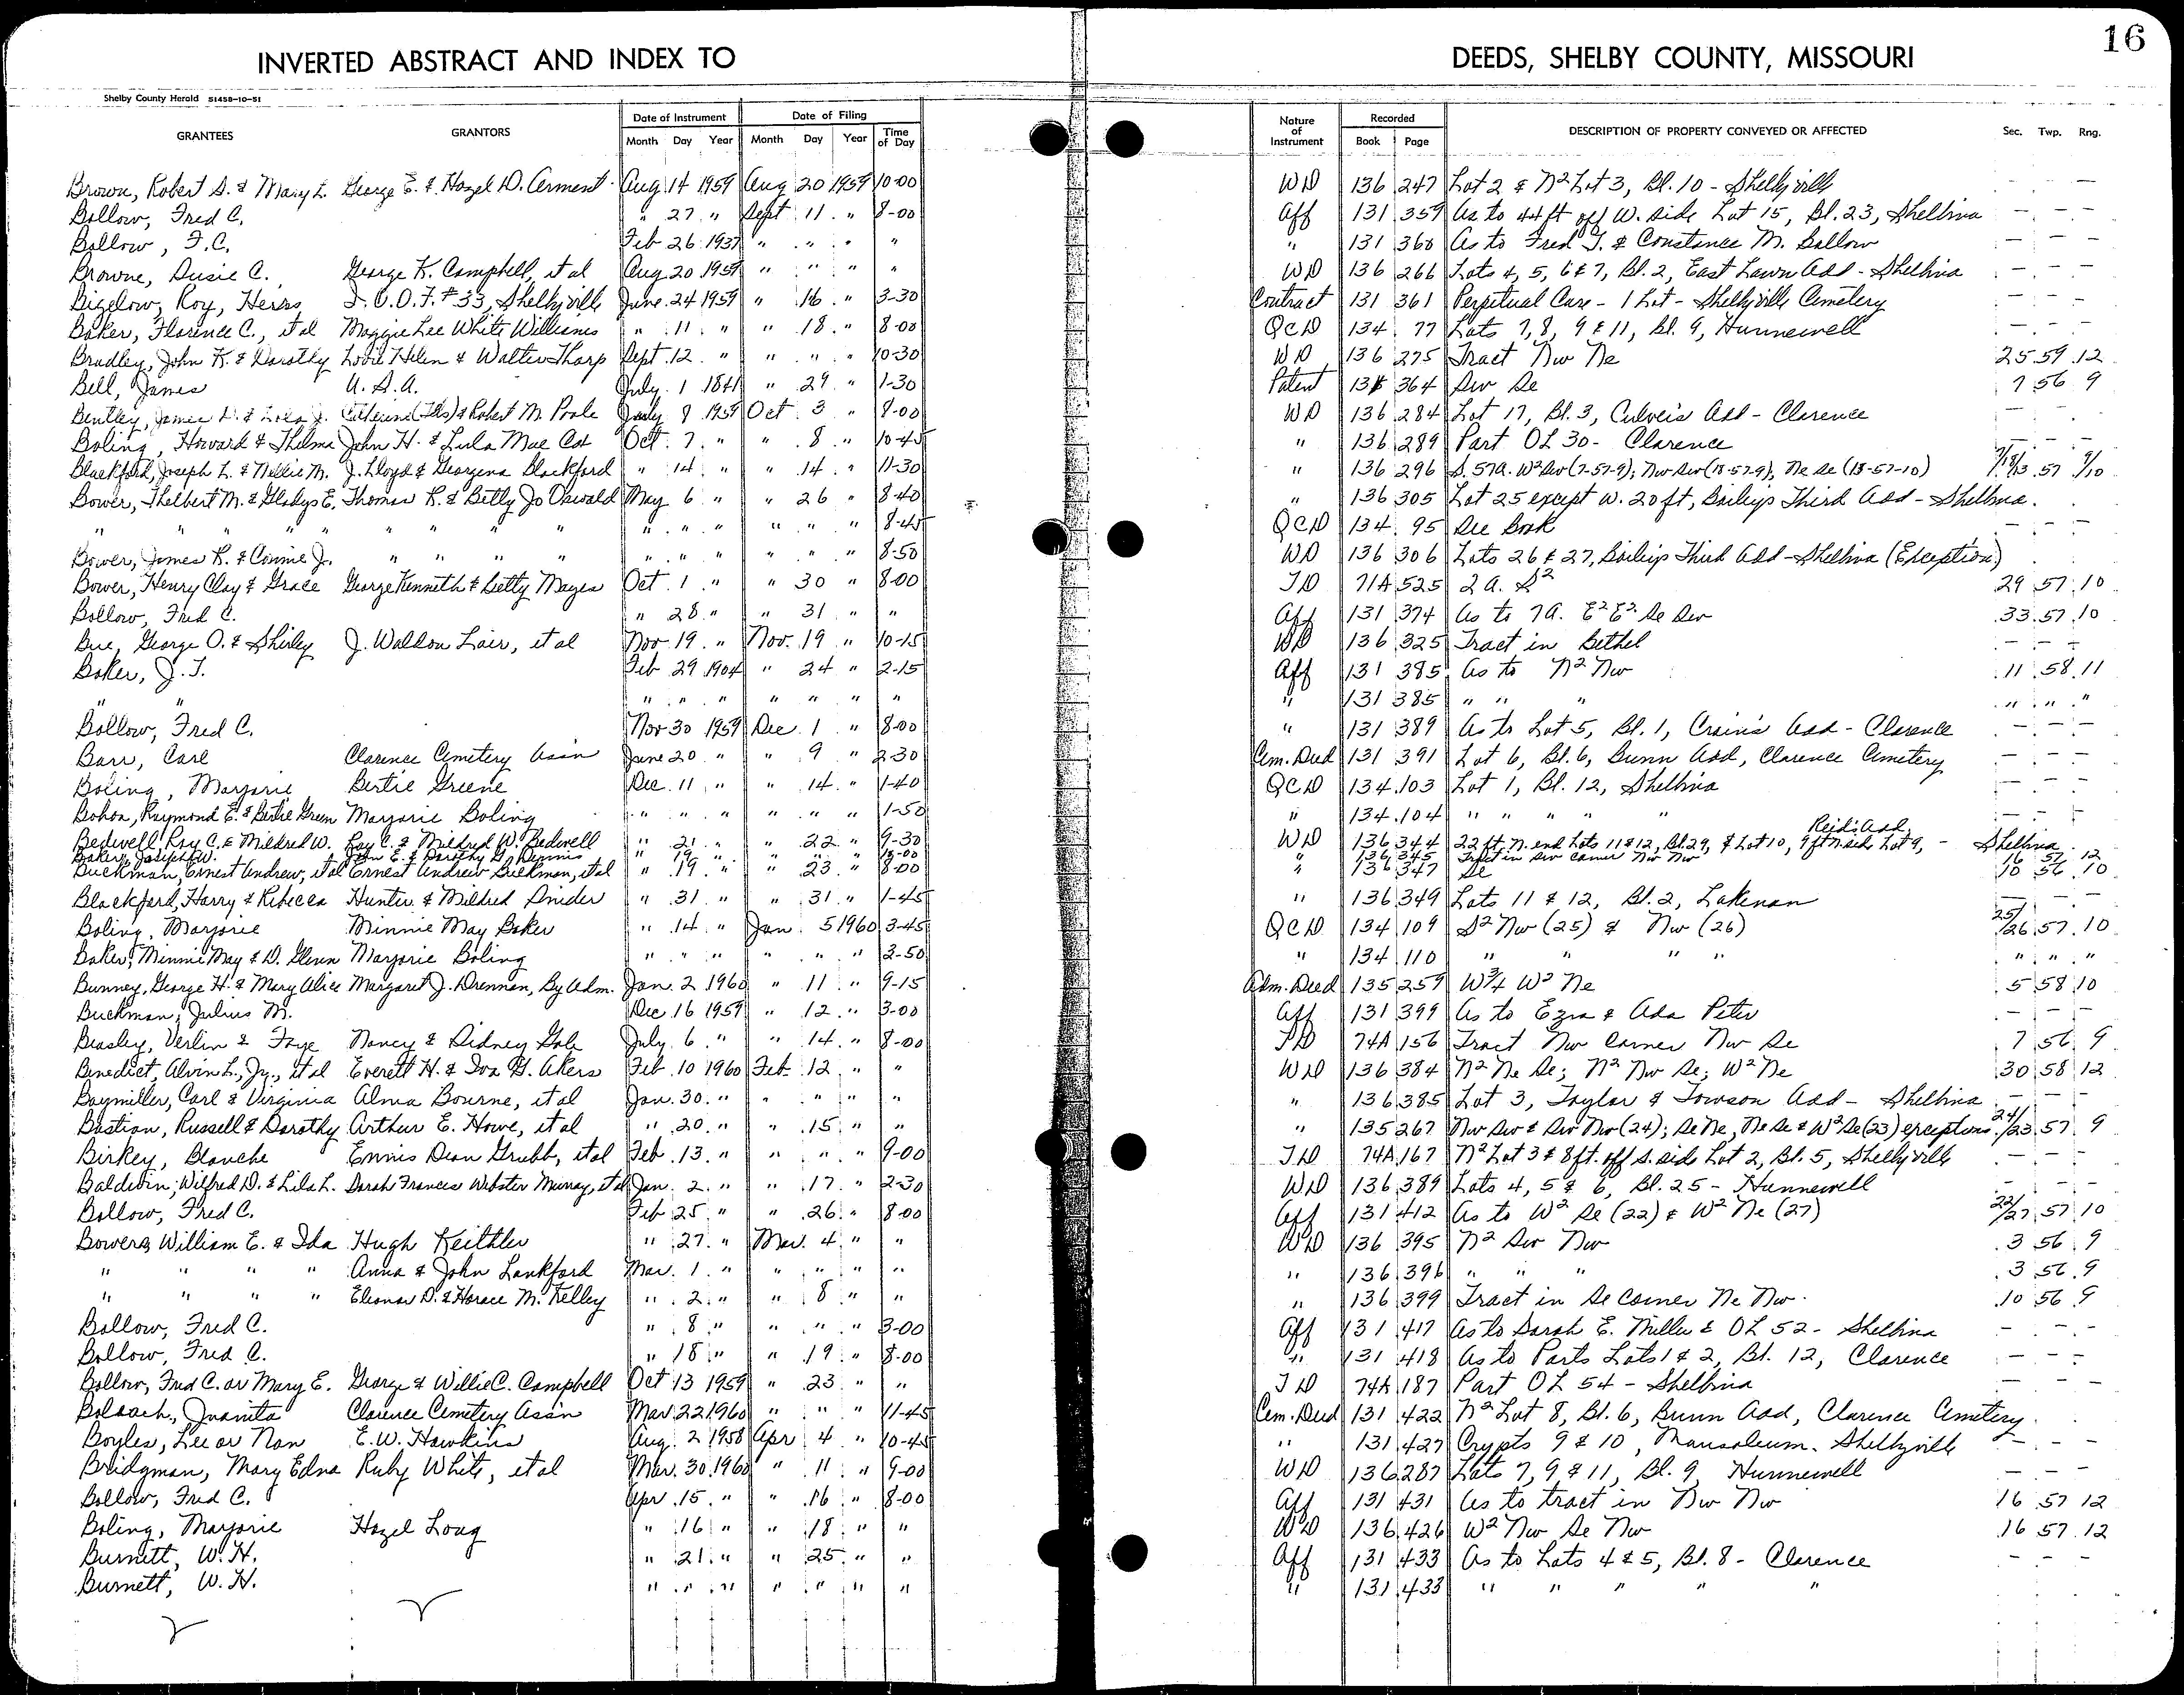 16
INVERTED ABSTRACT AND INDEX TO DEEDS, SHELBY COUNTY, MISSOURI
Shelby County Herald 51458-10-51
Date of Instrument Date of Filing Nature of Instrument Recorded
GRANTEES GRANTORS Month Day Year Month Day Year Time of Day Book Page DESCRIPTION OF PROPERTY CONVEYED OR AFFECTED Sec. Twp. Rng.
Brown, Robert S. & Mary L. George E. & Hazel D. Arment Aug 14 1959 Aug 20 1959 10-00 WD 136 247 Lot 2 & N² Lot 3, Bl. 10 - Shelbyville - - -
Bollow, Fred C. " 27 " Sept 11 " 8-00 Aff 131 359 As to 44 ft off W. side Lot 15, Bl. 23, Shelbina - - -
Bollow, F.C. Feb 26 1937 " " " " " 131 360 As to Fred J. & Constance M. Bollow - - -
Browne, Susie C. George K. Campbell, et al Aug 20 1959 " " " " WD 136 266 Lots 4, 5, 6 & 7, Bl. 2, East Lawn Add - Shelbina - - -
Bigelow, Roy, Heirs I.O.O.F. #33, Shelbyville June 24 1959 " 16 " 3-30 Contract 131 361 Perpetual Care - 1 Lot - Shelbyville Cemetery - - -
Baker, Florence C., et al Maggie Lee White Williams " 11 " " 18 " 8-00 QCD 134 77 Lots 7, 8, 9 & 11, Bl. 9, Hunnewell - - -
Bradley, John K. & Dorothy Lovie Helen & Walter Tharp Sept 12 " " " " 10-30 WD 136 275 Tract NW NE 25 59 12
Bell, James U.S.A. July 1 1841 " 29 " 1-30 Patent 131 364 SW SE 7 56 9
Bentley, James D. & Lola J. Catherine & Robert M. Poole July 8 1959 Oct 3 " 8-00 WD 136 284 Lot 17, Bl. 3, Culver's Add - Clarence - - -
Boling, Howard & Thelma John H. & Lula Mae Cox Oct. 7 " " 8 " 10-45 " 136 289 Part OL 30 - Clarence - - -
Blackford, Joseph L. & Nellie M. J. Lloyd & Georgena Blackford " 14 " " 14 " 11-30 " 136 296 S. 57A. W² SW (7-57-9); NW SW (18-57-9); NE SE (13-57-10) 7/18/13 57 9/10
Bower, Thelbert M. & Gladys E. Thomas R. & Betty Jo Oswald May 6 " " 26 " 8-40 " 136 305 Lot 25 except W. 20 ft, Baileys Third Add - Shelbina.
" " " " " " " " " " " " " " " 8-45 QCD 134 95 See Book - - -
Bower, James R. & Connie J. " " " " " " " " " " 8-50 WD 136 306 Lots 26 & 27, Baileys Third Add - Shelbina (Exception)
Bower, Henry Clay & Grace George Kenneth & Betty Mayes Oct. 1 " " 30 " 8-00 TD 71A 525 2 A. S² 29 57 10
Bollow, Fred C. " 28 " " 31 " " Aff 131 374 As to 7A. E² E² SE SW 33 57 10
Bue, George O. & Shirley J. Waldon Lair, et al Nov. 19 " Nov. 19 " 10-15 WD 136 325 Tract in Bethel - - -
Baker, J.T. Feb 29 1904 " 24 " 2-15 Aff 131 385 As to N² NW 11 58 11
" " " " " " " " " " 131 385 " " " " " "
Bollow, Fred C. Nov 30 1959 Dec. 1 " 8-00 " 131 389 As to Lot 5, Bl. 1, Crain's Add - Clarence - - -
Barr, Carl Clarence Cemetery Assn June 20 " " 9 " 2-30 Cem. Deed 131 391 Lot 6, Bl. 6, Bunn Add, Clarence Cemetery - - -
Boling, Marjorie Bertie Greene Dec. 11 " " 14 " 1-40 QCD 134 103 Lot 1, Bl. 12, Shelbina - - -
Bohon, Raymond E. & Bertie Green Marjorie Boling " " " " " " 1-50 " 134 104 " " " " " - - -
Bedwell, Roy C. & Mildred W. Roy C. & Mildred W. Bedwell " 21 " " 22 " 9-30 WD 136 344 22 ft. N. end Lots 11 & 12, Bl. 29, & Lot 10, 9 ft N. side Lot 9, Reid's Add - Shelbina
Baker, Joseph W. John E. & Dorothy G. Dennis " 19 " " " " " 136 345 Tract in SW corner NW NW 16 57 12
Buckman, Ernest Andrew, et al Ernest Andrew Buckman, et al " 19 " " 23 " 8-00 " 136 347 SE 10 56 10
Blackford, Harry & Rebecca Hunter & Mildred Snider " 31 " " 31 " 1-45 " 136 349 Lots 11 & 12, Bl. 2, Lakenan - - -
Boling, Marjorie Minnie May Baker " 14 " Jan. 5 1960 3-45 QCD 134 109 S² NW (25) & NW (26) 25/26 57 10
Baker, Minnie May & D. Glenn Marjorie Boling " " " " " " 3-50 " 134 110 " " " " " "
Bunney, George H. & Mary Alice Margaret J. Drennan, By Adm. Jan. 2 1960 " 11 " 9-15 Adm. Deed 135 259 W¾ W² NE 5 58 10
Buckman, Julius M. Dec 16 1959 " 12 " 3-00 Aff 131 399 As to Ezra & Ada Peter - - -
Beasley, Verlin & Faye Nancy & Sidney Gole July 6 " " 14 " 8-00 TD 74A 156 Tract NW Corner NW SE 7 56 9
Benedict, Alvin L., Jr., et al Everett H. & Iva G. Akers Feb 10 1960 Feb. 12 " " WD 136 384 N² NE SE; N² NW SE; W² NE 30 58 12
Baymiller, Carl & Virginia Alma Bourne, et al Jan. 30 " " " " " " 136 385 Lot 3, Taylor & Towson Add - Shelbina - - -
Bastian, Russell & Dorothy Arthur E. Howe, et al " 20 " " 15 " " " 135 267 NW SW & SW NW (24); SE NE, NE SE & W² SE (23) exceptions 24/23 57 9
Birkey, Blanche Ennis Dean Grubb, et al Feb. 13 " " " " 9-00 TD 74A 167 N² Lot 3 & 8 ft. off S. side Lot 2, Bl. 5, Shelbyville - - -
Baldwin, Wilfred D. & Lila L. Sarah Frances Webster Murray, et al Jan. 2 " " 17 " 2-30 WD 136 389 Lots 4, 5 & 6, Bl. 25 - Hunnewell - - -
Bollow, Fred C. Feb 25 " " 26 " 8-00 Aff 131 412 As to W² SE (22) & W² NE (27) 22/27 57 10
Bowers, William E. & Ida Hugh Keithler " 27 " Mar. 4 " " WD 136 395 N² SW NW 3 56 9
" " " " Anna & John Lankford Mar. 1 " " " " " " 136 396 " " " 3 56 9
" " " " Eleanor D. & Horace M. Kelley " 2 " " 8 " " " 136 399 Tract in SE Corner NE NW 10 56 9
Bollow, Fred C. " 8 " " " " 3-00 Aff 131 417 As to Sarah E. Miller & OL 52 - Shelbina - - -
Bollow, Fred C. " 18 " " 19 " 8-00 " 131 418 As to Parts Lots 1 & 2, Bl. 12, Clarence - - -
Bollow, Fred C. or Mary E. George & Willie C. Campbell Oct 13 1959 " 23 " " TD 74A 187 Part OL 54 - Shelbina - - -
Juanita Clarence Cemetery Ass'n Mar 22 1960 " " " 11-45 Cem. Deed 131 422 N² Lot 8, Bl. 6, Bunn Add, Clarence Cemetery
Boyles, Lee or Nan E.W. Hawkins Aug. 2 1958 Apr 4 " 10-45 " 131 427 Crypts 9 & 10, Mausoleum - Shelbyville - - -
Bridgman, Mary Edna Ruby White, et al Mar. 30 1960 " 11 " 9-00 WD 136 287 Lots 7, 9 & 11, Bl. 9, Hunnewell - - -
Bollow, Fred C. Apr 15 " " 16 " 8-00 Aff 131 431 As to tract in NW NW 16 57 12
Boling, Marjorie Hazel Long " 16 " " 18 " " WD 136 426 W² NW SE NW 16 57 12
Burnett, W.H. " 21 " " 25 " " Aff 131 433 As to Lots 4 & 5, Bl. 8 - Clarence - - -
Burnett, W.H. " " " " " " " " 131 433 " " " " "